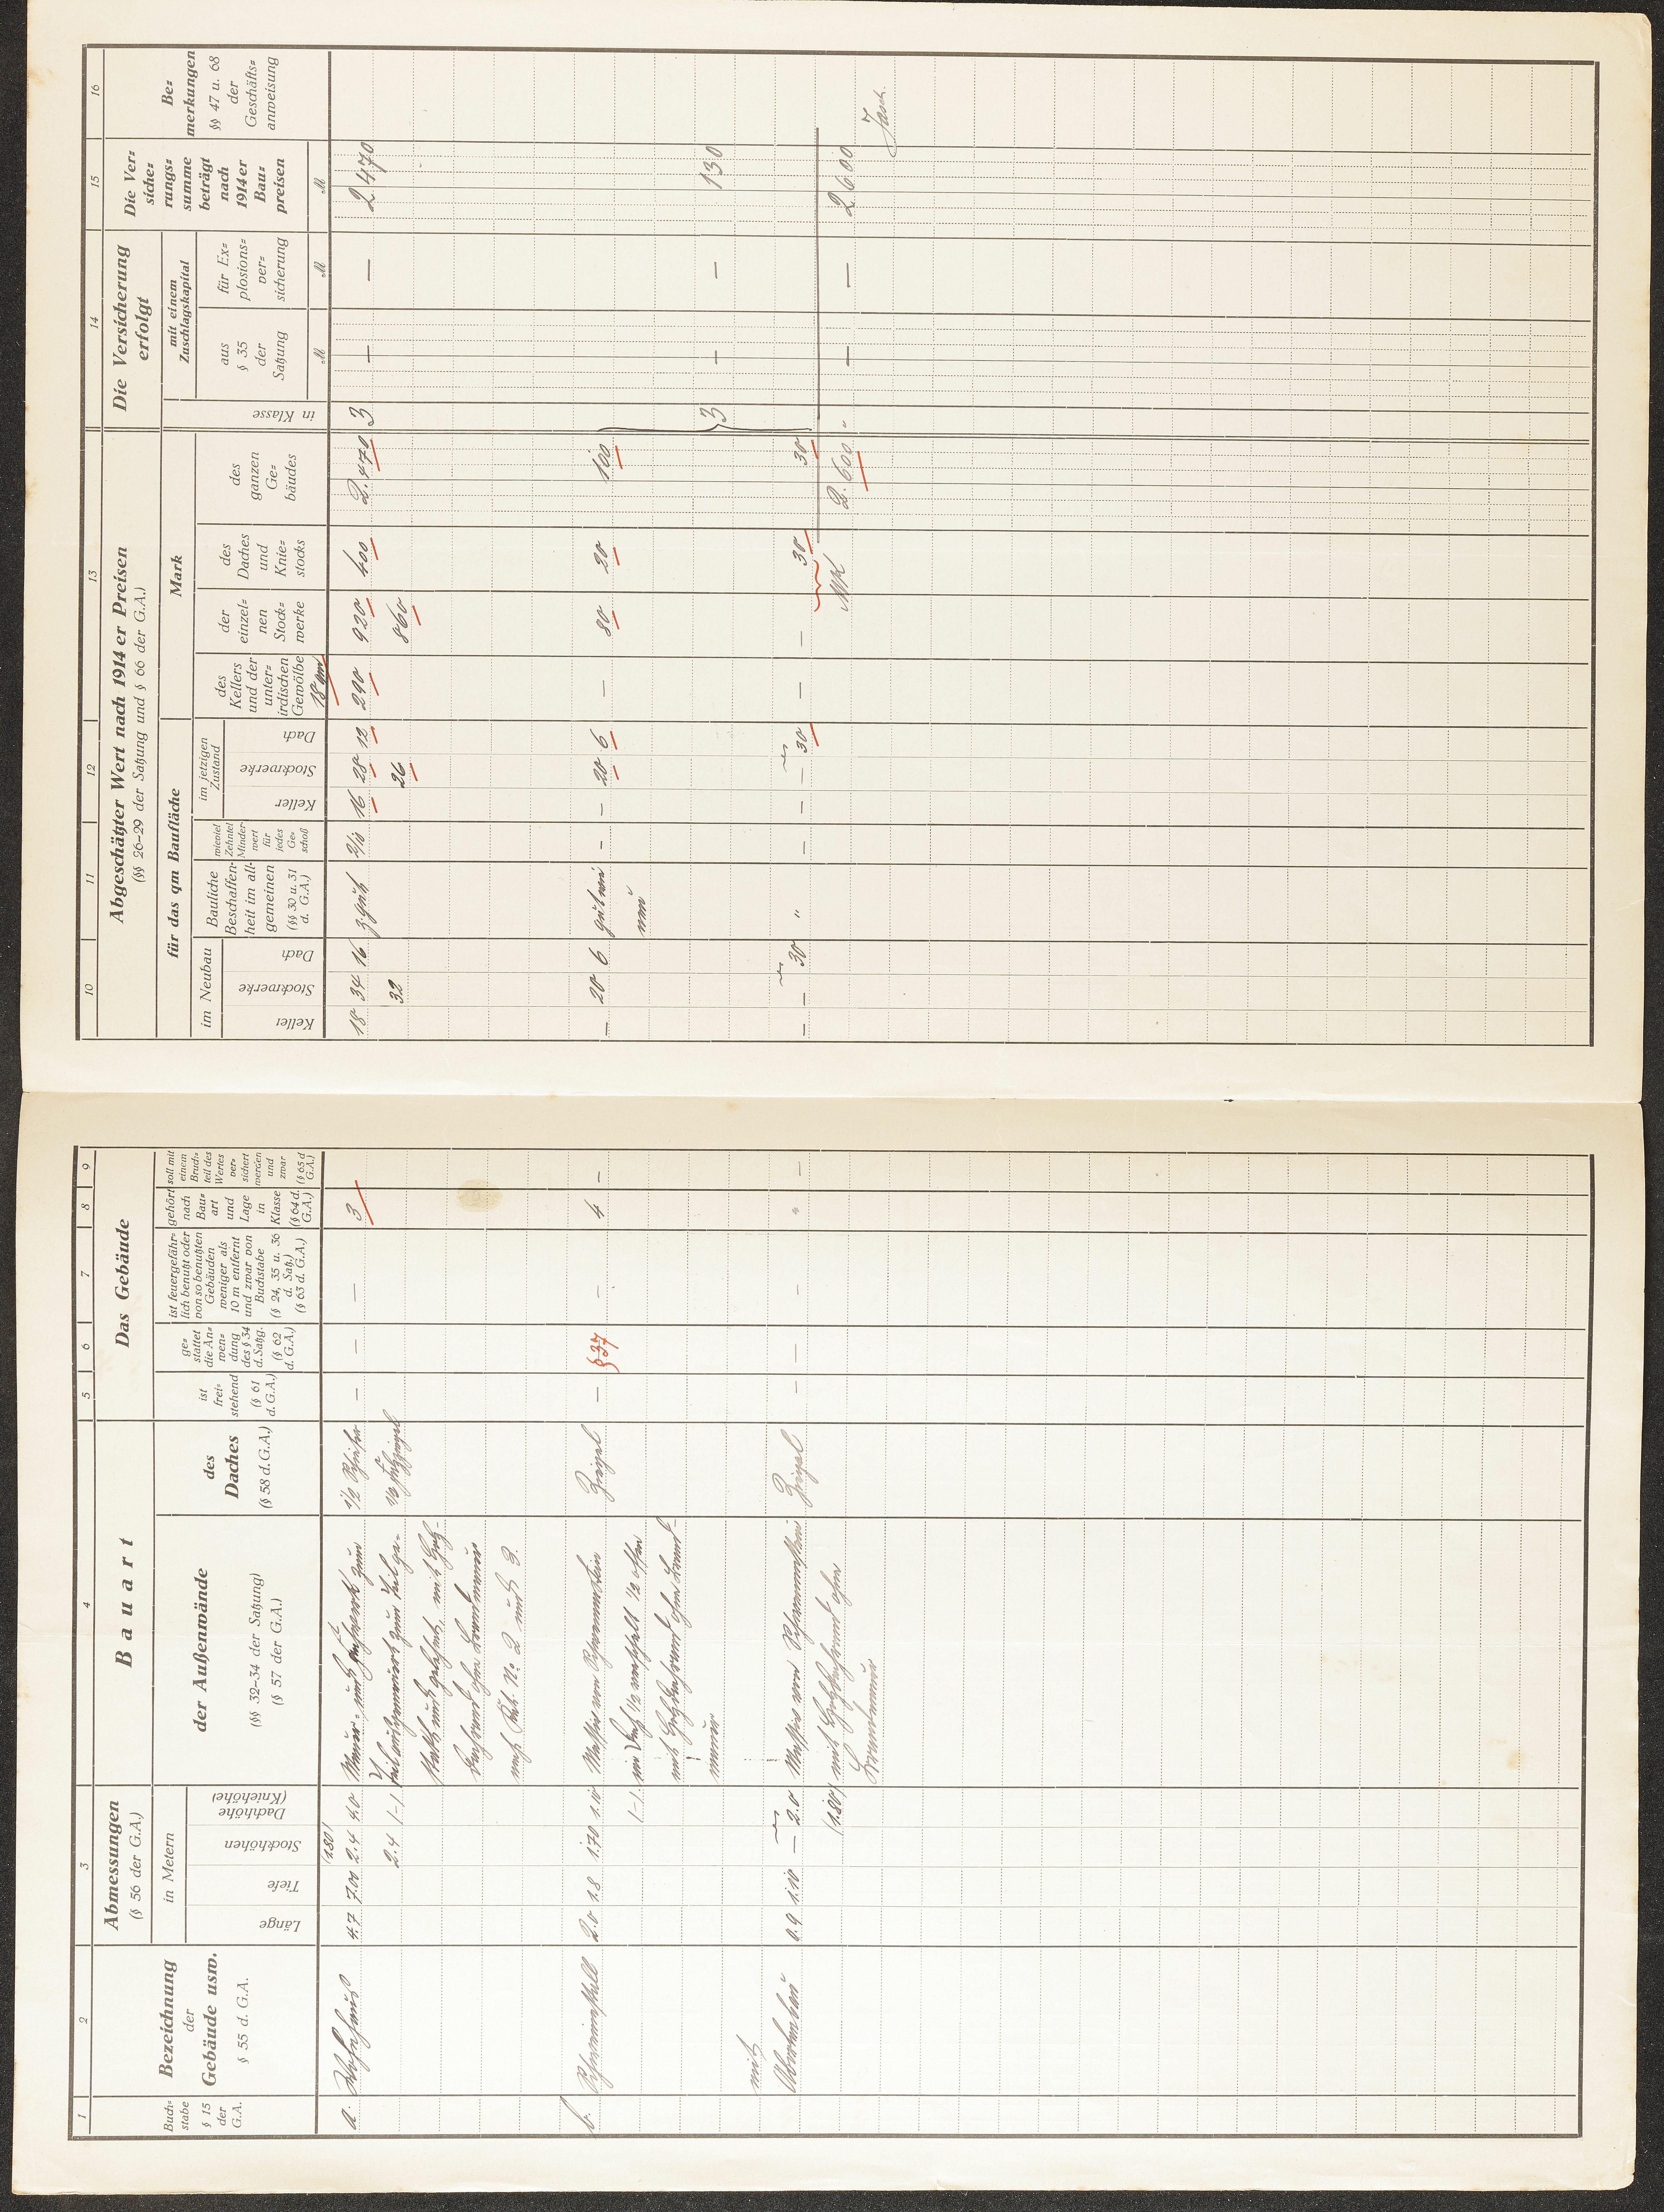 1
2
3
4
5
6
7
8
9
Buch=
stabe
§ 15
der
G.A.
Bezeichnung
der
Gebäude usw.
§ 55 d. G.A.
Abmessungen
(§ 56 der G.A.)
in Metern
Länge
Tiefe
Stockhöhen
Dachhöhe
(Kniehöhe)
Bauart
der Außenwände
(§§ 32-34 der Satzung)
(§ 57 der G.A.)
des
Daches
(§ 58 d. G.A.)
Das Gebäude
ist
frei=
stehend
(§ 61
d. G.A.)
ge=
stattet
die An=
wen=
dung
des § 34
d. Satzg.
(§ 62
d. G.A.)
ist feuergefähr=
lich benutzt oder
von so benutzten
Gebäuden
weniger als
10 m entfernt
und zwar von
Buchstabe
(§ 24, 35 u. 36
d. Satz.)
(§ 63 d. G.A.)
gehört
nach
Bau=
art
und
Lage
in
Klasse
(§ 64 d.
G.A.)
soll mit
einem
Bruch=
teil des
Wertes
ver=
sichert
werden
und
zwar
(§ 65 d
G.A.)
(1.80)
a. Wohnhaus 4.7 7.01 2.4 4.0 Mauer- und Fachwerk zum 1/2 Schiefer — — — 3
2.4 (-) Teil ausgemauert zum Teil ge- 1/2 Falzziegel
mit Holz-
ohne Brandmauer
nach Geb. No. 2 und 3.
b. Schweinestall 2.0 1.8 1.70 1.10 Massiv von Schwemmstein Ziegel — § 37 — 4 —
(-) 1/2 1/2 offen
mit ohne Brand-
mauer
mit
Abortanbau 0.9 1.10 — 2.0 Massiv von Schwemmstein Ziegel — — — " —
(1.80) mit ohne
Brandmauer
10
11
12
13
14
15
16
Abgeschätzter Wert nach 1914 er Preisen
(§§ 26-29 der Satzung und § 66 der G.A.)
für das qm Baufläche
im Neubau
Keller
Stockwerke
Dach
Bauliche
Beschaffen-
heit im all-
gemeinen
(§§ 30 u. 31
d. G.A.)
wieviel
Zehntel
Minder-
wert
für
jedes
Ge-
schoß
im jetzigen
Zustand
Keller
Stockwerke
Dach
Mark
des
Kellers
und der
unter=
irdischen
Gewölbe
18 qm
der
einzel=
nen
Stock=
werke
des
Daches
und
Knie=
stocks
des
ganzen
Ge=
bäudes
Die Versicherung
erfolgt
in Klasse
mit einem
Zuschlagskapital
aus
§ 35
der
Satzung
M
für Ex=
plosions=
ver=
sicherung
M
Die Ver=
siche=
rungs=
summe
beträgt
nach
1914 er
Bau=
preisen
M
Be=
merkungen
§§ 47 u. 68
der
Geschäfts=
anweisung
18 34 16 z. gut 2/10 16 28 12 290 920 400 2.470 3 — — 2470
32 26 860
— 20 6 gut wie — — 20 6 — 80 20 100
neu
3 — — 130
— — 30 " — — — 30 — — 30 30
Mk 2.600 " — — 2600